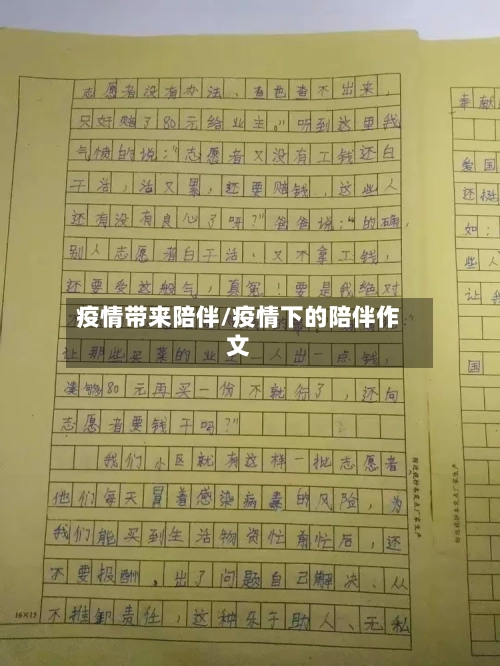 志愿者没有办法、查也查不出来,
只好赔了80元给业主。"听到这里我
气愤的说:"志愿者又没有工钱还白
干活,活又累,还要赔钱,这些人
还有没有良心了呀?"爸爸说:"的确,
别人志愿者白干活、又不拿工钱,
还要受这般气,真冤!要是我绝对
疫情带来陪伴/疫情下的陪伴作
文
让那些买菜的业主一人出一点钱,
凑够80元再买一份不就行了,还向
志愿者要钱干吗?"
我们小区就有这样一批志愿者
他们每天冒着感染病毒的风险,为
我们能买到生活物资忙前忙后,还
不要报酬。出了问题自己解决、从
不推卸责任,这种乐于助人、无私
16×15
奉献
爱国
还挺
如:
些人
让我
国